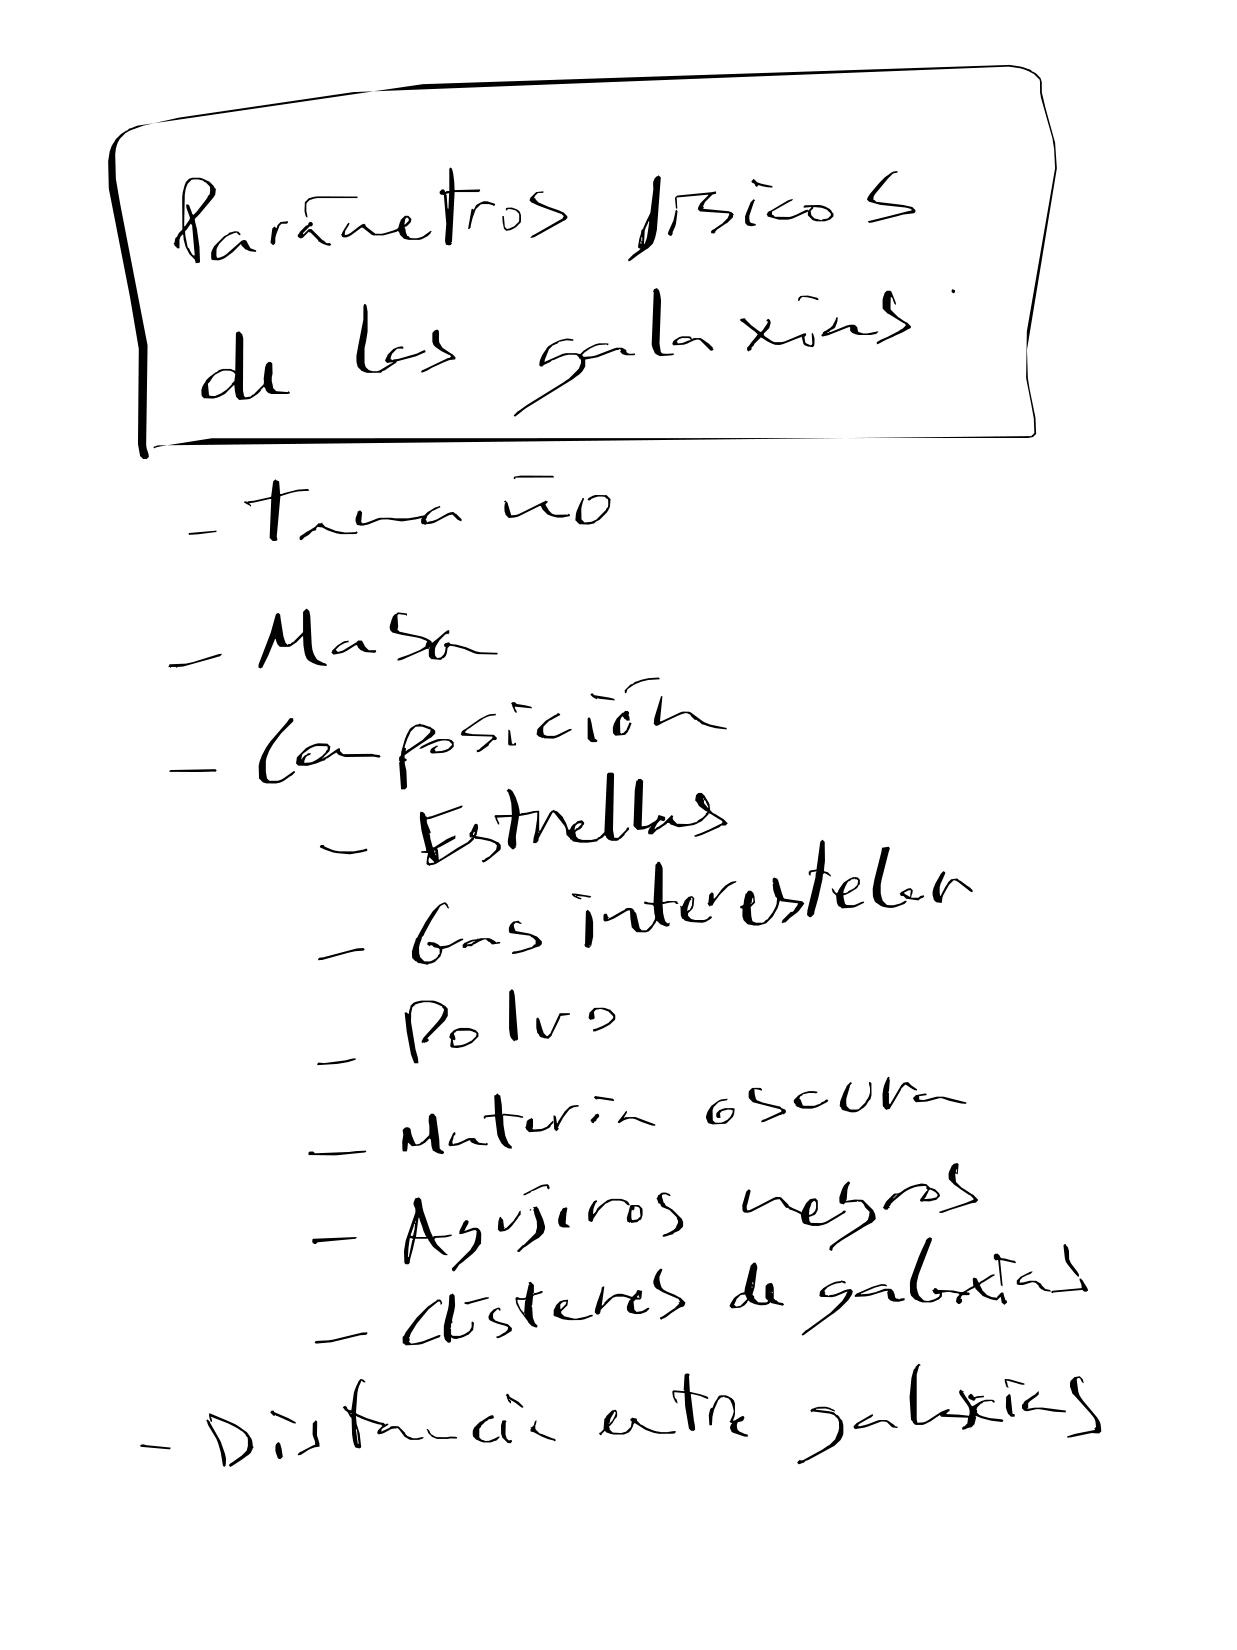 Parámetros físicos
de las galaxias
- Tamaño
- Masa
- Composición
- Estrellas
- Gas interestelar
- Polvo
- Materia oscura
- Agujeros negros
- Clústeres de galaxias
- Distancia entre galaxias